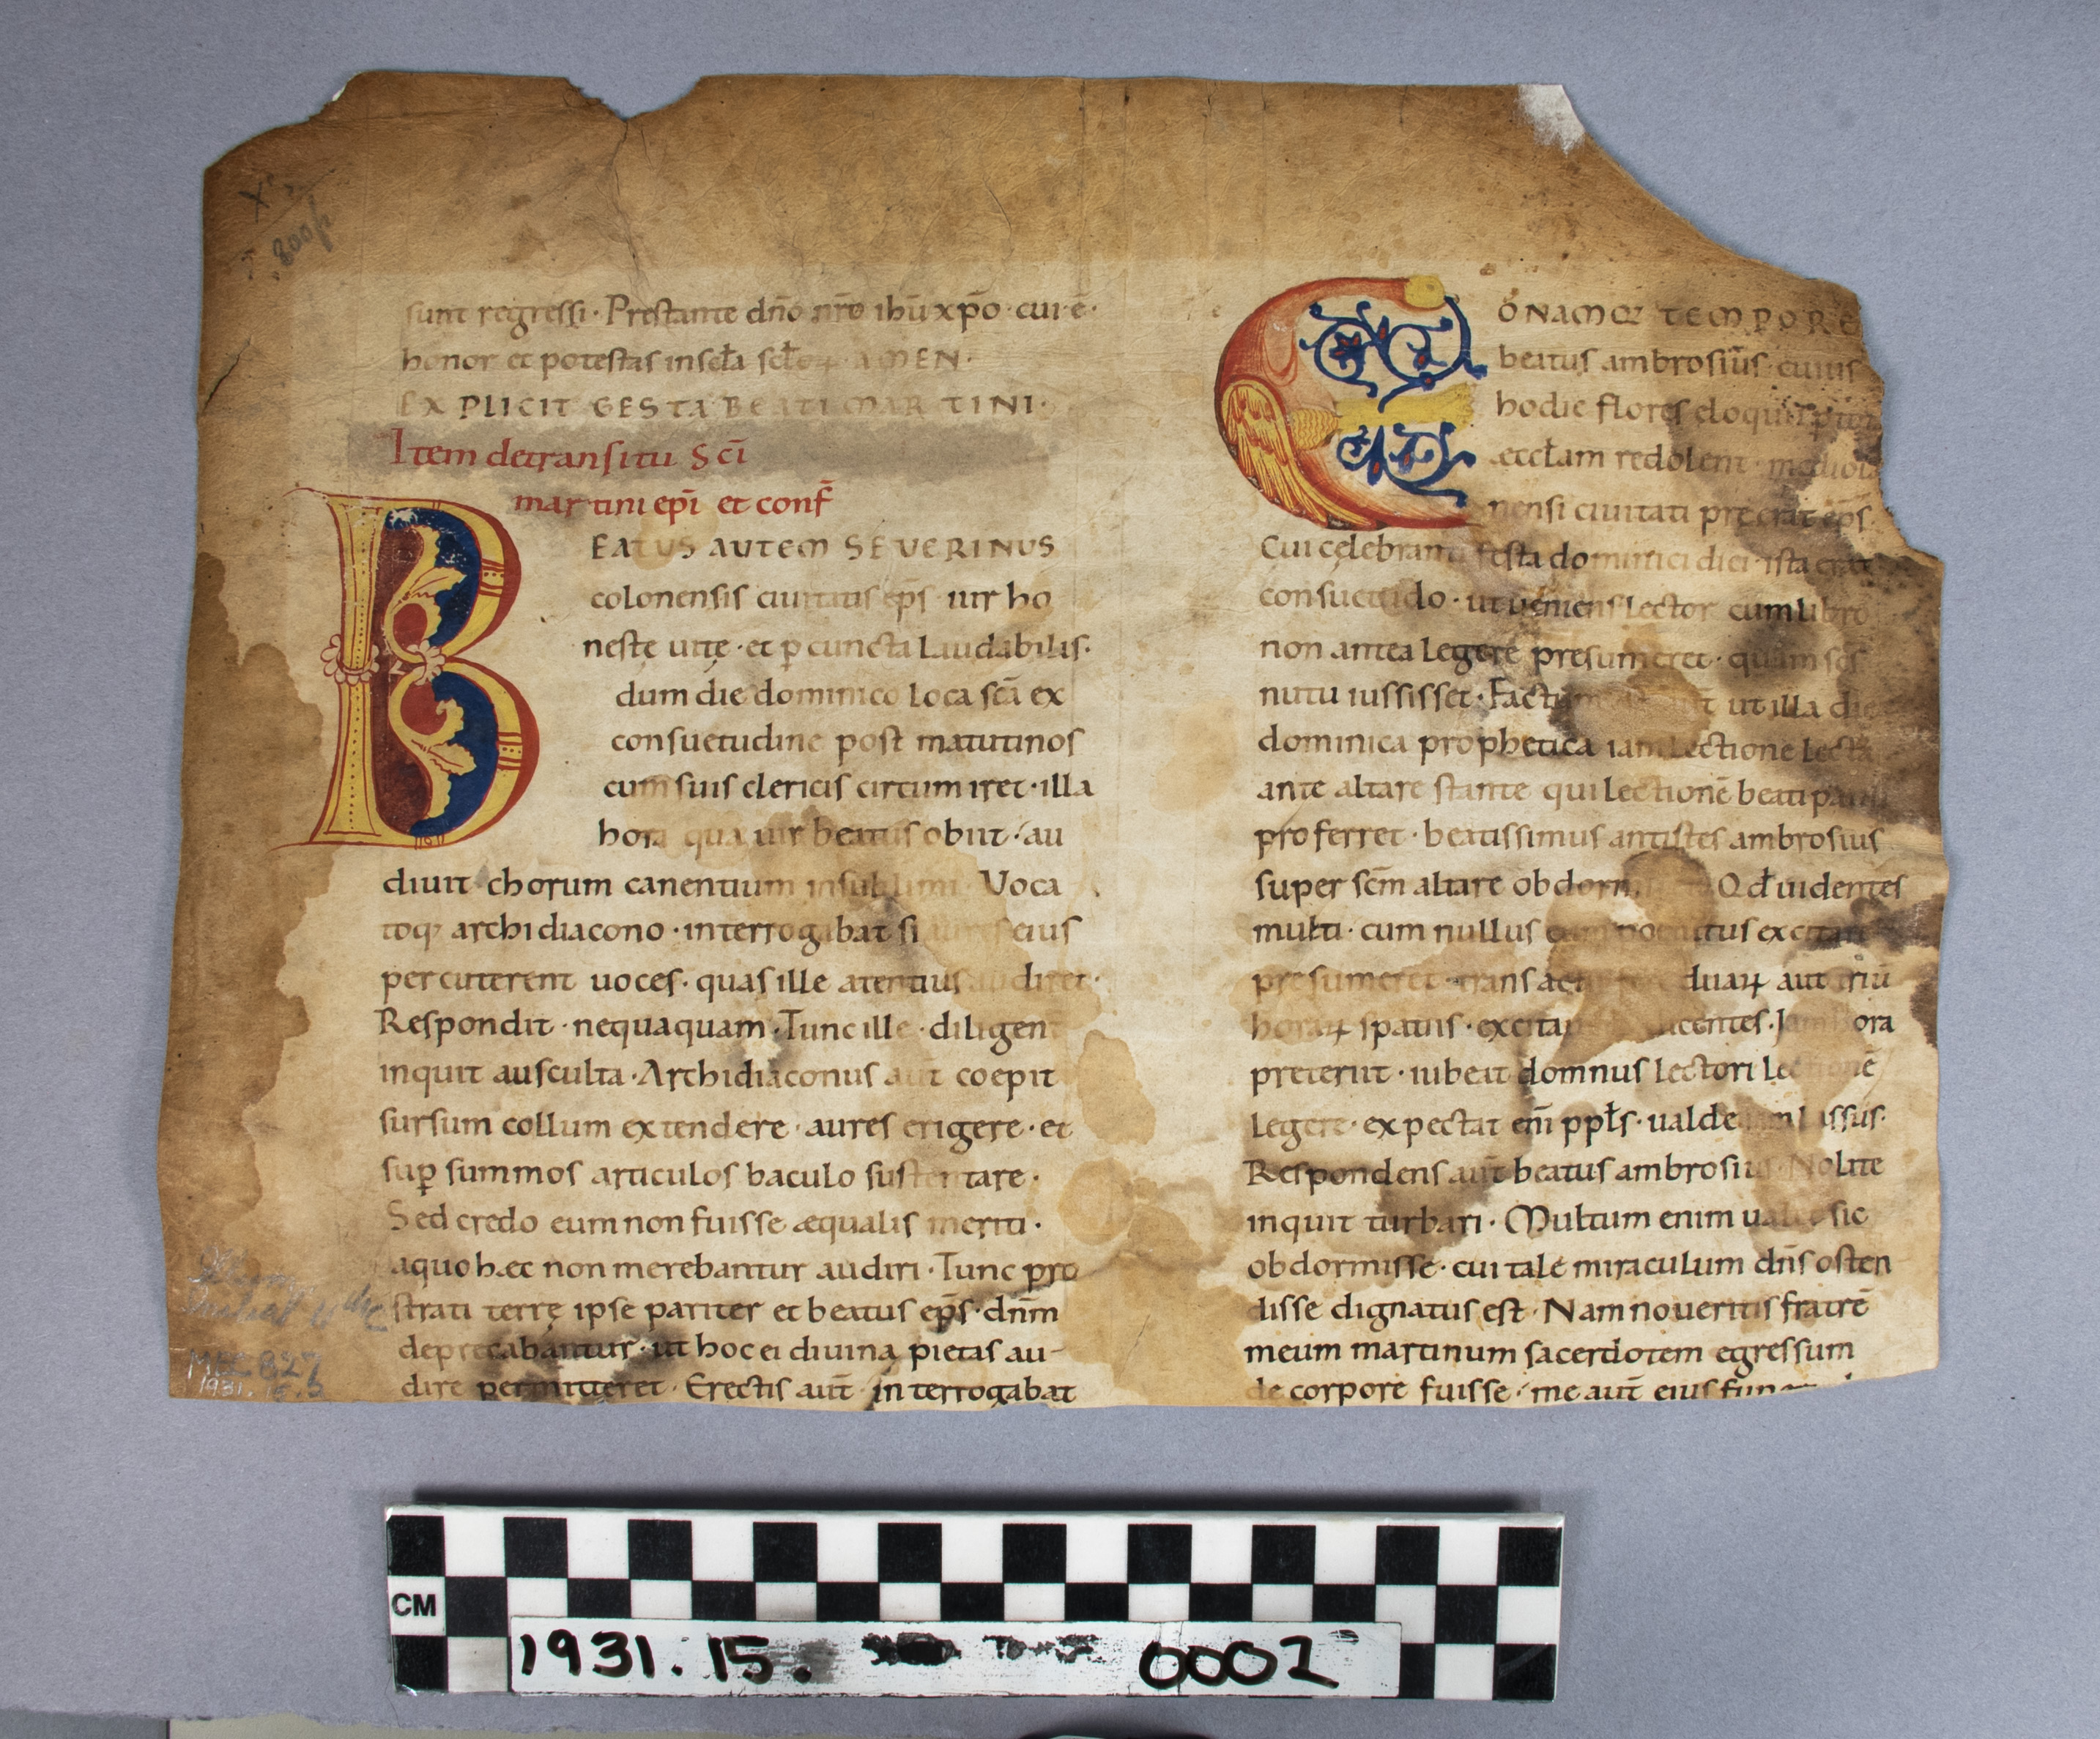 X
800
sunt regressi · Prestante dño nr̄o ihū xp̄o · cui ē ·
honor et potestas in scła scło AMEN ·
EXPLICIT GESTA BEATI MARTINI ·
Item de transitu Sc̄i
martini ep̄i et conf̄
BEATUS AUTEM SEVERINUS
colonensis ciuitatis ep̄s uir ho
nestę uitę · et ꝑ cuncta laudabilis ·
dum die dominico loca sc̄a ex
consuetudine post matutinos
cum suis clericis circumiret · illa
hora qua uir beatus obiit · au
diuit chorum canentium in sublimi Voca
toq; archidiacono · interrogabat si aures eius
percuterent uoces · quas ille atentius audiret ·
Respondit · nequaquam · Tunc ille · diligent
inquit ausculta · Archidiaconus aut̄ coepit
sursum collum extendere · aures erigere · et
suꝑ summos articulos baculo sustentare ·
Sed credo eum non fuisse æqualis meriti ·
a quo hæc non merebantur audiri · Tunc pro
strati terrę ipse pariter et beatus ep̄s · dnm̄
deprecabantur · ut hoc ei diuina pietas au-
dire permitteret · Erectis aut̄ interrogabat
EO NAMQ; TEMPORE
beatus ambrosius · cuius
hodie flores eloquii p
æccłam redolent · mediola
nensi ciuitati preerat ep̄s ·
Cui celebranti festa dominici diei · ista erat
consuetudo · ut ueniens lector cum libro
non antea legere presumeret · quam sc̄s
nutu iussisset · Factum ut illa die
dominica prophetica iam lectione lecta
ante altare stante qui lectionē beati pauli
proferret · beatissimus antistes ambrosius
super sc̄m altare obdorm Qđ uidentes
multi · cum nullus eum penitus excitare
presumeret · transactis fere duaꝝ aut triū
horaꝝ spatiis · excitant dicentes · Iam hora
preteriit · iubeat domnus lectori lectionē
legere · expectat eni̅ ppłs · ualde iam lassus ·
Respondens aut̄ beatus ambrosius · Nolite
inquit turbari · Multum enim ualet sic
obdormisse · cui tale miraculum dn̄s osten
disse dignatus est · Nam noueritis fratrē
meum martinum sacerdotem egressum
de corpore fuisse · me aut̄ eius
827
1931.15.
CM
1931. 15. 0002